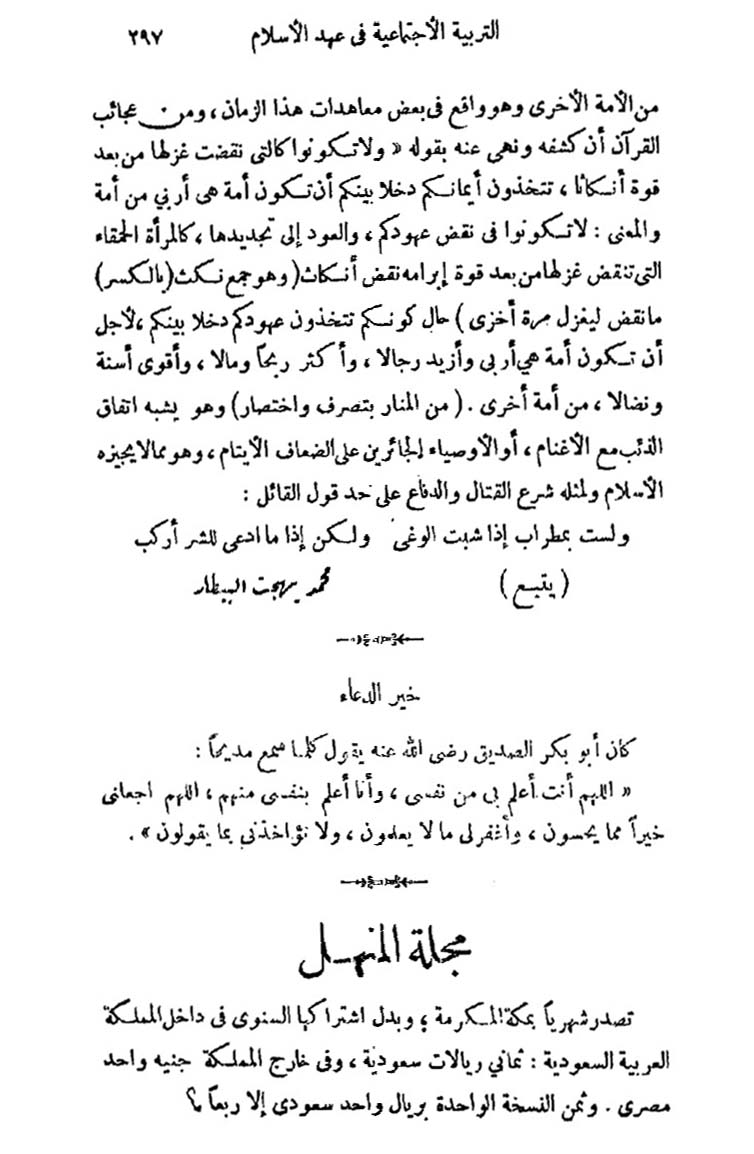 التربية الأجتماعية فى عهد الأسلام ٢٩٧
من الأمة الأخرى وهو واقع فى بعض معاهدات هذا الزمان ، ومن عجائب
القرآن أن كشفه ونهى عنه بقوله « ولا تكونوا كالتى نقضت غزلها من بعد
قوة أنكاثا ، تتخذون أيمانكم دخلا بينكم أن تكون أمة هى أربي من أمة
والمعنى : لا تكونوا فى نقض عهودكم ، والعود إلى تجديدها ، كالمرأة الحمقاء
التى تنقض غزلها من بعد قوة إبرامه نقض أنكاث ( وهو جمع نكث ( بالكسر )
ما نقض ليغزل مرة أخرى ) حال كونكم تتخذون عهودكم دخلا بينكم ، لأجل
أن تكون أمة هي أربى وأزيد رجالا ، وأكثر ربحاً ومالا ، وأقوى أسنة
ونضالا ، من أمة أخرى . ( من المنار بتصرف واختصار ) وهو يشبه اتفاق
الذئب مع الأغنام ، أو الأوصياء الجائرين على الضعاف الأيتام ، وهو مما لا يجيزه
الأسلام ولمثله شرع القتال والدفاع على حد قول القائل :
ولست بمطراب إذا شبت الوغى ولكن إذا ما ادعى للشر أركب
( يتبع ) محمد بهجت البيطار
خير الدعاء
كان أبو بكر الصديق رضى الله عنه يقول كلما سمع مديحاً :
« اللهم أنت أعلم بى من نفسى ، وأنا أعلم بنفسى منهم ، اللهم اجعلنى
خيراً مما يحسبون ، وأغفر لى ما لا يعلمون ، ولا تؤاخذنى بما يقولون » .
مجلة المنهل
تصدر شهرياً بمكة المكرمة ؛ وبدل اشتراكها السنوى فى داخل المملكة
العربية السعودية : ثماني ريالات سعودية ، وفى خارج المملكة جنيه واحد
مصرى . وثمن النسخة الواحدة بريال واحد سعودى إلا ربعاً